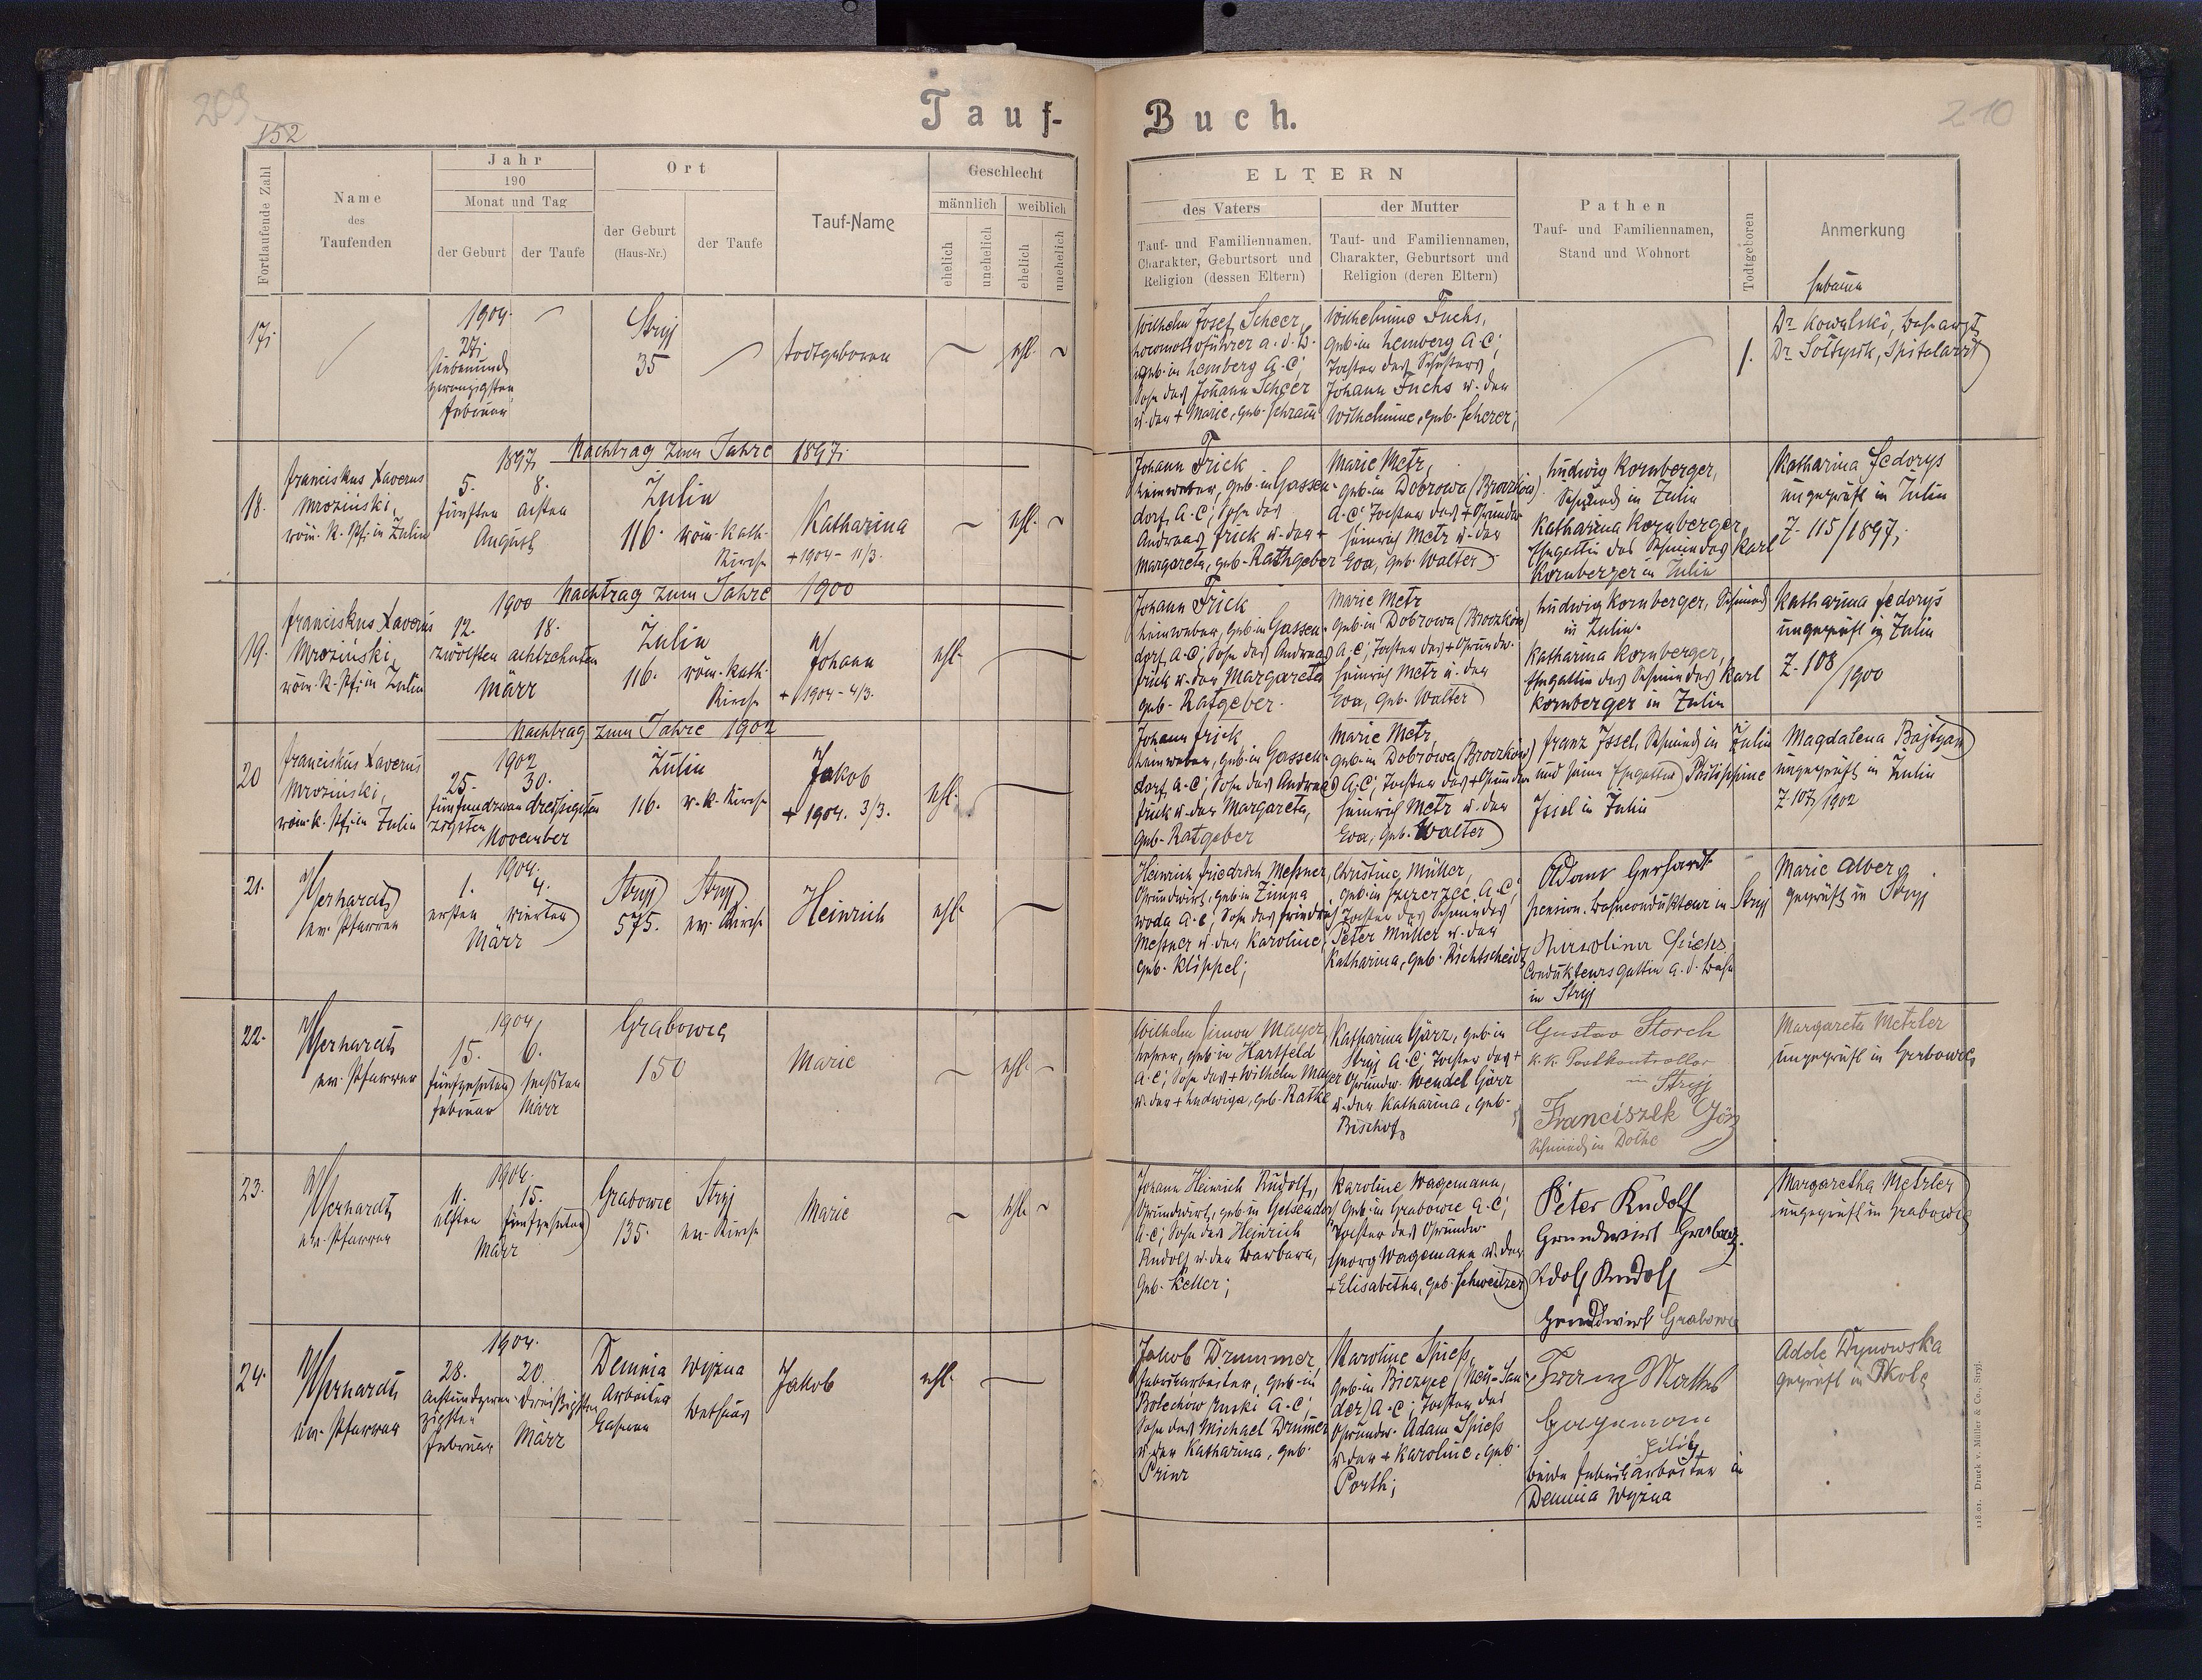 209
152
Tauf-
Buch.
210
Fortlaufende Zahl
Name
des
Taufenden
Jahr
190
Monat und Tag
der Geburt
der Taufe
Ort
der Geburt
(Haus-Nr.)
der Taufe
Tauf-Name
Geschlecht
männlich
weiblich
ehelich
unehelich
ehelich
unehelich
ELTERN
des Vaters
Tauf- und Familiennamen,
Charakter, Geburtsort und
Religion (dessen Eltern)
der Mutter
Tauf- und Familiennamen,
Charakter, Geburtsort und
Religion (deren Eltern)
Pathen
Tauf- und Familiennamen,
Stand und Wohnort
Todtgeboren
Anmerkung
17.
1904.
27.
siebenund
zwanzigsten
Februar
Stryj
35
todtgeboren
ehl.
Wilhelm Josef Scheer,
geb. in Lemberg A. C;
Sohn des Johann Scheer
u. der + Marie, geb. Schram
Wilhelmine Fuchs,
geb. in Lemberg A. C;
Tochter des Schusters
Johann Fuchs u. der
Wilhelmine, geb. Scherer;
1.
Dr. Kowalski, Bahnarzt
Dr. Soltysik, Spitalarzt
Nachtrag zum Jahre 1897.
18.
Franciskus Xaverus
Mroziński,
röm. k. Pf. in Zulin
1897.
5. 8.
fünften achten
August
Zulin
116. röm. kath.
Kirche
Katharina
+ 1904 - 11/3.
ehl.
Johann Frick
Leinweber, geb. in Gassen-
dorf, A. C; Sohn des
Andreas Frick u. der +
Margareta, geb. Rathgeber
Marie Metz,
geb. in Dobrowa (Brodzków)
A. C; Tochter des + Grundw.
Heinrich Metz u. der
Eva, geb. Walter
Ludwig Kornberger,
Schmied in Zulin
Katharina Kornberger,
Ehegattin des Schmiedes Karl
Kornberger in Zulin
Katharina Fedorys
ungeprüft in Zulin
Z. 115/1897.
Nachtrag zum Jahre 1900
19.
Franciskus Xaverus
Mroziński,
röm. k. Pf. in Zulin
1900
12. 18.
zwölften achtzehnten
März
Zulin
116. röm. kath.
Kirche
Johann
+ 1904 - 4/3.
ehl.
Johann Frick
Leinweber, geb. in Gassen-
dorf, A. C; Sohn des Andreas
Frick u. der Margareta
geb. Ratgeber.
Marie Metz
geb. in Dobrowa (Brodzków)
A. C; Tochter des + Grundw.
Heinrich Metz u. der
Eva, geb. Walter
Ludwig Kornberger, Schmied
in Zulin.
Katharina Kornberger,
Ehegattin des Schmiedes Karl
Kornberger in Zulin
Katharina Fedorys
ungeprüft in Zulin
Z. 108/1900
Nachtrag zum Jahre 1902
20
Franciskus Xaverus
Mroziński,
röm. k. Pf. in Zulin
1902
25. 30.
fünfundzwan- dreißigsten
zigsten
November
Zulin
116. r. k. Kirche
Jakob
+ 1904. 3/3.
ehl.
Johann Frick
Leinweber, geb. in Gassen-
dorf, A. C; Sohn des Andreas
Frick u. der Margareta,
geb. Ratgeber
Marie Metz,
geb. in Dobrowa (Brodzków)
A. C; Tochter des + Grundw.
Heinrich Metz u. der
Eva, geb. Walter
Franz Issel, Schmied in Zulin
und seine Ehegattin Philippine
Issel in Zulin
Magdalena Bajtyan
ungeprüft in Zulin
Z. 107/1902
21.
Gerhardt
ev. Pfarrer
1904.
1. 4.
ersten vierten
März
Stryj Stryj
575. ev. Kirche
Heinrich
ehl.
Heinrich Friedrich Meßner,
Grundwirt, geb. in Zimna
woda A. C; Sohn des Friedrich
Meßner u. der Karoline,
geb. Klippel;
Christine Müller,
Tochter des Schmiedes
Peter Müller u. der
Katharina, geb. Richtscheid
Adam Gerhardt
pension. Bahncondukteur in Stryj
Karoline Fuchs
Condukteursgattin a. d. Bahn
in Stryj
Marie Alberg
geprüft in Stryj
22.
Gerhardt
ev. Pfarrer
1904
15. 6.
fünfzehnten sechsten
Februar März
Grabowce
150
Marie
ehl.
Wilhelm Simon Mayer,
Lehrer, geb. in Hartfeld
A. C; Sohn des + Wilhelm Mayer
u. der + Ludwiga, geb. Rathe
Katharina Görz, geb. in
Stryj A. C; Tochter des +
Grundw. Wendel Görz
u. der Katharina, geb.
Bischof
Gustav Storch
k. k. Postkontrollor
in Stryj
Franciszek Görz
Schmied in Dolhe
Margareta Metzler
ungeprüft in Grabowce
23.
Gerhardt
ev. Pfarrer
1904.
11. 15.
elften fünfzehnten
März
Grabowce Stryj
135. ev. Kirche
Marie
ehl.
Johann Heinrich Rudolf,
Grundwirt, geb. in Gelsendorf
A. C; Sohn des Heinrich
Rudolf u. der Barbara,
geb. Keller;
Karoline Wagemann,
geb. in Grabowce A. C;
Tochter des Grundw.
Georg Wagemann u. der
+ Elisabetha, geb. Schweitzer
Peter Rudolf
Grundwirt Grabowce
Adolf Rudolf
Grundwirt Grabowce
Margaretha Metzler
ungeprüft in Grabowce
24.
Gerhardt
ev. Pfarrer
1904.
28. 20.
achtundzwan- dreißigsten
zigsten
Februar März
Demnia wyzna
Arbeiter Bethaus
Jakob
ehl.
Jakob Drummer,
Fabriksarbeiter, geb. in
Bolechow ruski A. C;
Sohn des Michael Drummer
u. der Katharina, geb.
Prinz
Karoline Spieß,
geb. in Biczyce (Neu-San-
dez) A. C; Tochter des
Grundw. Adam Spieß
u. der + Karoline, geb.
Porth;
Franz Mattes
beide Fabriksarbeiter in
Demnia wyzna
Adele Dynowska
geprüft in Skole
118.01. Druck v. Müller & Co., Stryj.